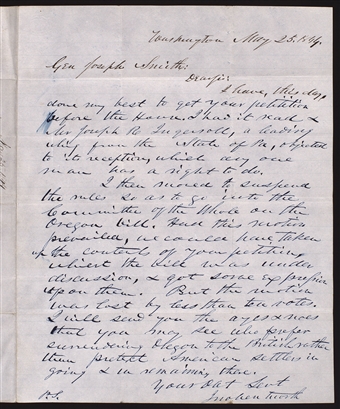 Washington May 25. 1844.
Gen Joseph Smith:
Dear Sir:
I have, this day,
done my best to get your petition
before the House. I had it read &
Mr Joseph R Ingersoll, a leading
whig from the State of Pa, objected
to its reception, which any one
man has a right to do.
I then moved to suspend
the rules so as to go into the
Committee of the Whole on the
Oregon bill. Had this motion
prevailed, we could have taken
up the contents of your petition,
whilst the bill was under
discussion, & got some expression
upon them. But the motion
was lost by less than ten votes.
I will send you the ayes & noes
that you may see who prefer
surrendering Oregon to the British rather
than protect American settlers in
going & in remaining there.
Your Obt Servt
John Wentworth
P.S.